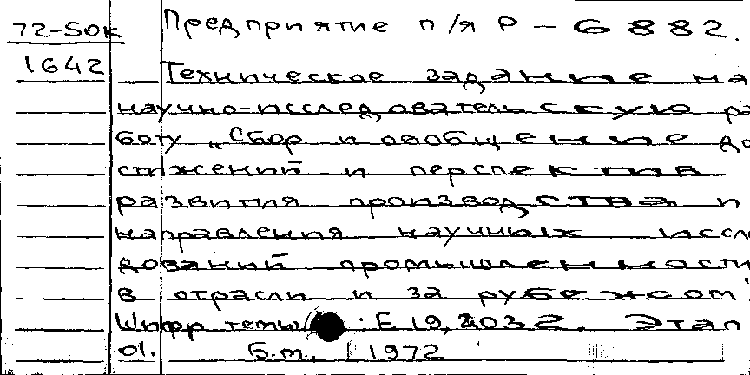 72-SOK
1642
Предприятие п/я Р-6882.
Техническое задание на
научно-исследовательскую ра
боту „Сбор и обобщение до
стижений и перспектив
развития производства и
направления научных иссле
дований промышленности
в отрасли и за рубежом"
Шифр темы: Е19,2032. Этап
01. Б.м., 1972